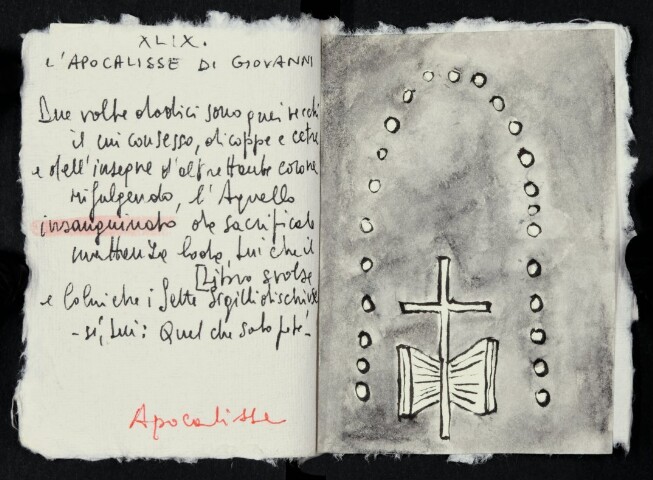 XLIX.
L'APOCALISSE DI GIOVANNI
Due volte dodici sono quei vecchi
il cui consesso, di coppe e cetre
e dell'insegne d'altrettante corone
rifulgendo, l'Agnello
insanguinato da sacrificale
mattanza loda, Lui che il
Libro svolse
e Colui che i Sette Sigilli dischiuse
- sì, Lui: Quel che solo poté -
Apocalisse